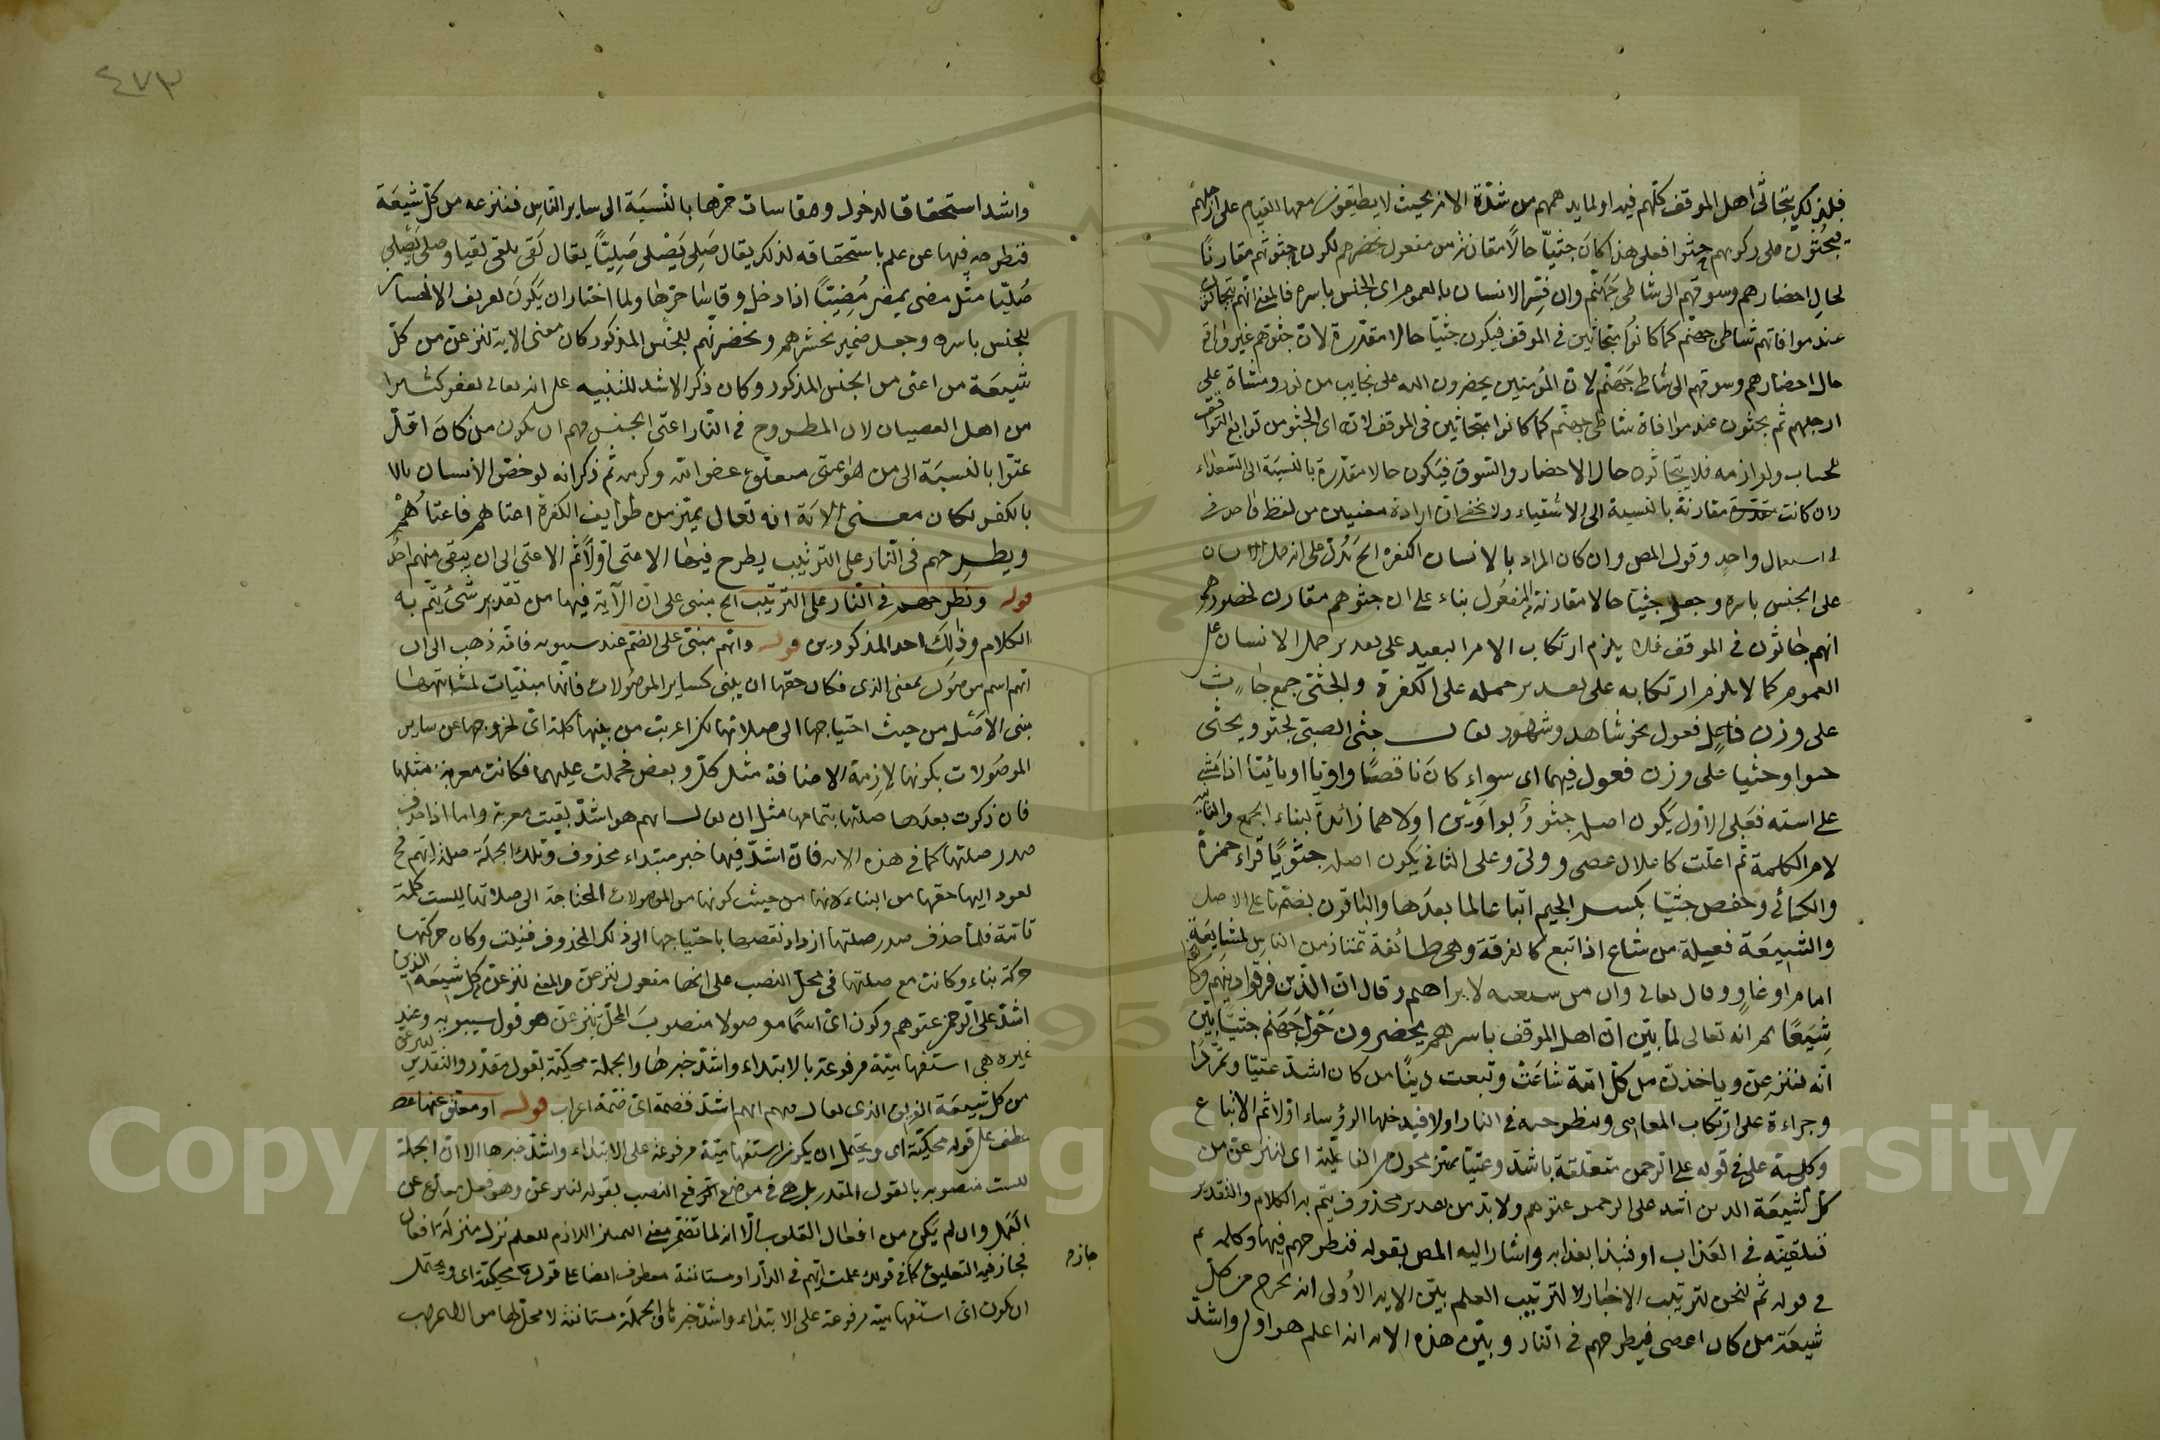 فلذلك يتجاثى اهل الموقف كلهم فيه او لما يدهمهم من شدّة الامر بحيث لا يطيقون معها القيام على ارجلهم
فيجثون على ركبهم جثوا فعلى هذا كان جثيّا حالا مقارنة من مفعول نحضرهم لكون جثوّهم مقارنًا
لحال احضارهم وسوقهم الى شاطئ جهنّم وان فسّر الانسان بالعموم اى الجنس باسره فالمعنى انهم يتجاثون
عند موافاتهم شاطئ جهنّم كما كانوا يتجاثين في الموقف فيكون جثيّا حالا مقدّرة لانّ جثوّهم غير واقع
حال احضارهم وسوقهم الى شاطئ جهنّم لانّ المؤمنين يحضرون الله على نجايب من نور ومشاة على
ارجلهم ثم يجثون عند موافاة شاطئ جهنّم كما كانوا يتجاثين في الموقف لانه اى الجثو من توابع التواقف
للحساب ولوازمه فلا يتجاثون حال الاحضار والسّوق فيكون حالا مقدّرة بالنسبة الى السّعداء
وان كانت مقارنة بالنسبة الى الاشقياء ولا يخفى انّ ارادة معنيين من لفظ واحد في
استعمال واحد وقول المص وان كان المراد بالانسان الكفرة الخ يدلّ على انه حمل الانسان
على الجنس باسره وجعل جثيا حالا مقارنة للمفعول بناء على ان جثوهم مقارن لحضورهم
انهم جاثون في الموقف يلزم ارتكاب الامر البعيد على تقدير حمل الانسان على
العموم كما لا يلزم ارتكابه على تقدير حمله على الكفرة والجثيّ جمع جاث
على وزن فاعل فعول نحو شاهد وشهود يقال جثى الصبىّ يجثو ويجثى
جثوا وجثيا على وزن فعول فيهما اى سواء كان ناقصًا واويا او يائيّا اذا مشى
على استه فعلى الاوّل يكون اصله جثوو بواوين اولاهما زائدة لبناء الجمع والثانية
لام الكلمة ثم اعلّت كاعلال عصى ودلىّ وعلى الثاني يكون اصله جثويًا قراء حمزة
والكسائى وحفص جثيّا بكسر الجيم اتباعا لما بعدها والباقون بضمّها على الاصل
والشيعة فعيلة من شاع اذا تبع كالفرقة وهى طائفة تمتاز من الناس لمشايعة
امام او غاو وقال تعالى وان من شيعته لابراهيم وقال انّ الّذين فرقوا دينهم وكانوا
شيعًا ثم انه تعالى لما بيّن انّ اهل الموقف باسرهم يحضرون حول جهنّم جثيّا بيّن
انّه لننزعنّ وياخذنّ من كلّ امّة شاعت وتبعت دينًا من كان اشدّ عتيّا وتمرّدًا
وجراءة على ارتكاب المعاصى ويطرحه في النار اولا فيدخلها الرؤساء اوّلا ثم الاتباع
وكلمة على في قوله على الرحمن متعلقة باشدّ وعتيّا تمييز محول من الفاعليّة اى لننزعنّ من
كلّ شيعة الذين اشد على الرحمن عتوهم ولا بدّ من تقدير محذوف يتمّ به الكلام والتقدير
فنلقينّه في العذاب او فنبدأ بعذابه واشار اليه المص بقوله فنطرحهم فيها وكلمة ثم
في قوله ثم لنحن لترتيب الاخبار لا لترتيب العلم بيّن الاية الاولى انه يخرج من كلّ
شيعة من كان اعصى فيطرحهم في النار وبيّن هذه الاية انه اعلم هو اولى واشدّ
٤٧٣
واشد استحقاقا لدخول ومقاسات حرّها بالنّسبة الى ساير النّاس فننزعه من كلّ شيعة
فنطرحه فيها عن علم باستحقاقه لذلك يقال صلى يصلى صليّا يقال لقى يلقى لقيا وصلى يصلى
صليّا مثل مضى يمضى مضيّا اذا دخل وقاسا حرّها ولما اختار ان يكون تعريف الانسان
للجنس باسره وجعل ضمير نحشرهم ونحضرنّهم للجنس المذكور كان معنى الاية لننزعنّ من كلّ
شيعة من اعتى من الجنس المذكور وكان ذكر الاشد للتنبيه على انه تعالى يعفو كثيرا
من اهل العصيان لان المطروح في النار اعتى الجنس فهم ان يكون من كان اقلّ
عتوّا بالنسبة الى من هو اعتى متعلق عفو الله وكرمه ثم ذكر انه لو خصّ الانسان
بالكفر لكان معنى الاية انه تعالى يميّز من طوايف الكفرة اعتاهم فاعتاهم
ويطرحهم في النار على الترتيب يطرح فيها الاعتى اوّلا ثم الاعتى الى ان يبقى منهم احد
قوله ونطرحهم في النار على الترتيب الخ مبنى على انّ الآية فيها من تقدير شئ يتمّ به
الكلام وذلك احد المذكورين قوله وايّهم مبنى على الضمّ عند سيبويه فانّه ذهب الى ان
ايّهم اسم موصول بمعنى الذى فكان حقها ان يبنى كساير الموصولات فانّها مبنيّات لمشابهتها
مبنى الاصل من حيث احتياجها الى صلاتها لكن اعربت من بينها كلمة اىّ لخروجها عن ساير
الموصولات بكونها لازمة الاضافة مثل كلّ وبعض فحملت عليهما فكانت معربة مثلها
فان ذكرت بعدها صلتها بتمامها مثل ان يقال ايهم هو اشدّ بقيت معربة واما اذا حذف
صدر صلتها كما في هذه الاية فانّ اشدّ فيها خبر مبتداء محذوف وتلك الجملة صلة لايّهم فح
تعود اليها حقها من البناء لانها من حيث كونها من الموصولات المحتاجة الى صلاتها ليست كلمة
تامّة فلمّا حذف صدر صلتها ازداد نقصها باحتياجها الى ذلك المحذوف فبنيت وكان حركتها
حركة بناء وكانت مع صلتها في محل النصب على انها مفعول لننزعنّ والمعنى لننزعنّ من كلّ شيعة الذين
اشدّ على الرحمن عتوهم وكون اىّ اسمًا موصولا منصوب المحلّ بننزعنّ هو قول سيبويه وعند
غيره هى استفهاميّة مرفوعة بالابتداء واشدّ خبرها والجملة محكيّة بقول مقدّر والتقدير لننزعنّ
من كلّ شيعة الذين يقال فيهم ايهم اشدّ فضمة اىّ ضمّة اعراب قوله او معلق عنها
عطف على قوله محكيّة اى ويحتمل ان يكون استفهاميّة مرفوعة على الابتداء واشدّ خبرها الا انّ الجملة
ليست منصوبة بالقول المقدر بل هى في موضع النصب بقوله لننزعنّ وهو فعل معلّق عن
العمل وان لم يكن من افعال القلوب الّا انه لما تضمّن معنى التمييز اللازم للعلم نزل منزلة افعال
فجاز فيه التعليق كما في قولك علمت ايّهم في الدّار او مستانفة معطوف ايضا على قوله محكيّة اى ويحتمل
ان يكون اىّ استفهاميّة مرفوعة على الابتداء واشدّ خبرها والجملة مستانفة لا محلّ لها من الاعراب
Copyright © King Saud University
1957